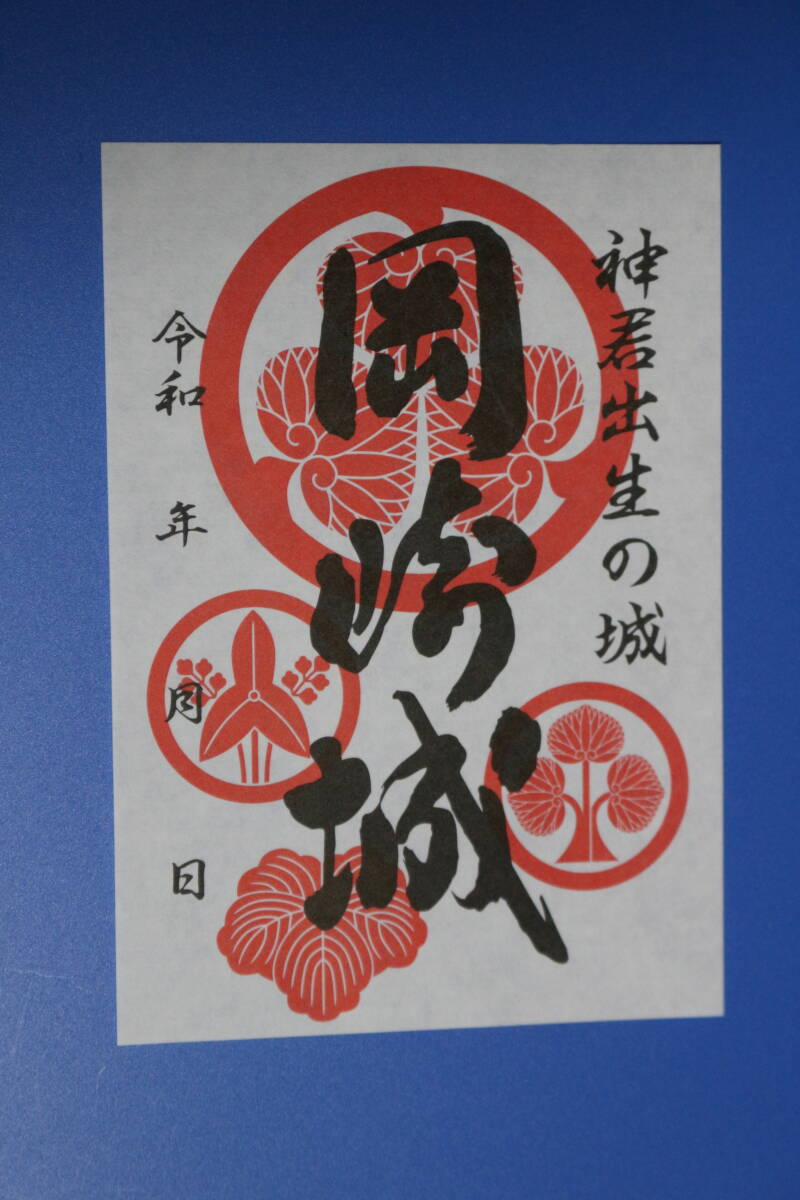 神君出生の城
岡崎城
令和 年 月 日